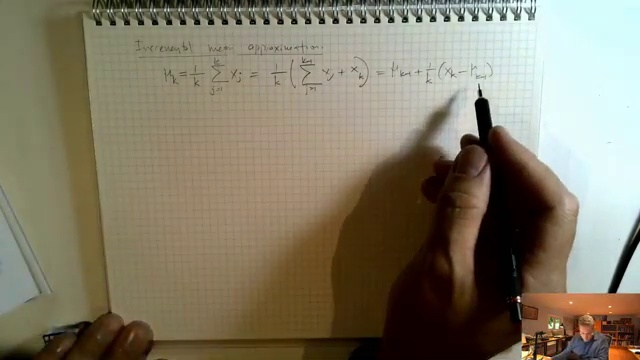 Incremental mean approximation:
μ_k = 1/k ∑_{j=1}^{k} x_j = 1/k ( ∑_{j=1}^{k-1} x_j + x_k ) = μ_{k-1} + 1/k (x_k − μ_{k-1})